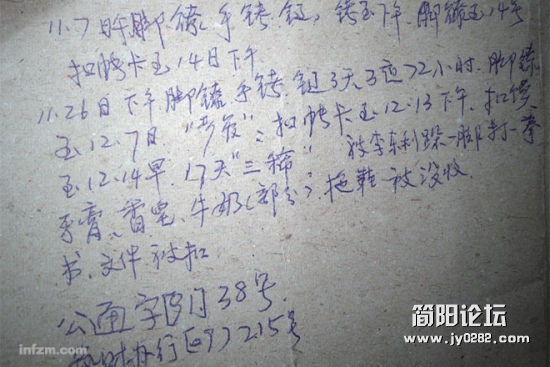 11.7日午脚镣.手铐.链,铐至下午.脚镣至14号
扣帐卡至14日下午
11.26日下午脚镣手铐.链3天3夜72小时.脚镣
至12.7日."劳役":扣帐卡至12.13下午.扣馍
至12.14早.17天"三稀"被李车利跺一脚打一拳
牙膏、香皂.牛奶(部分).拖鞋被没收
书.文件被扣
公通字[]38号
行[97]215号
infzm.com
简阳论坛
www.jy0282.com